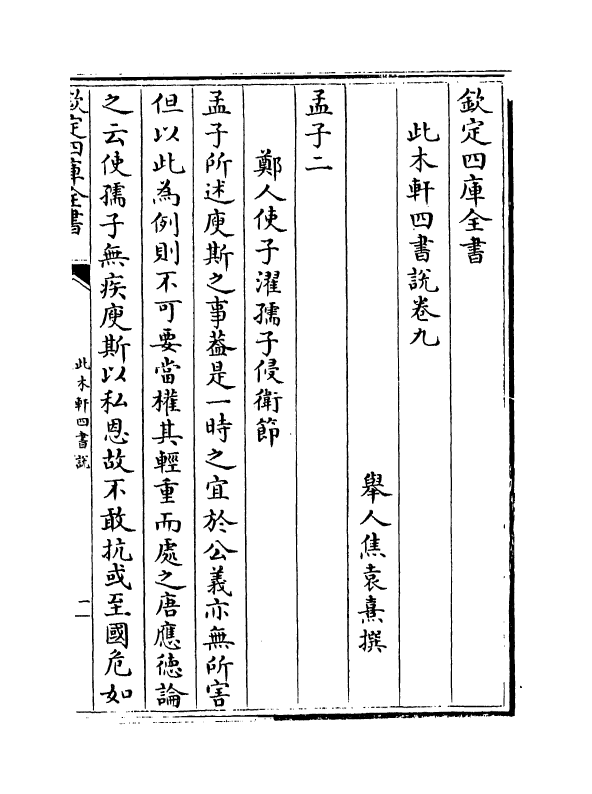 欽定四庫全書
此木軒四書説卷九
舉人焦袁熹撰
孟子二
鄭人使子濯孺子侵衛節
孟子所述庾斯之事葢是一時之宜於公義亦無所害
但以此為例則不可要當權其輕重而處之唐應徳論
之云使孺子無疾庾斯以私恩故不敢抗或至國危如
欽定四庫全書
此木軒四書説
一